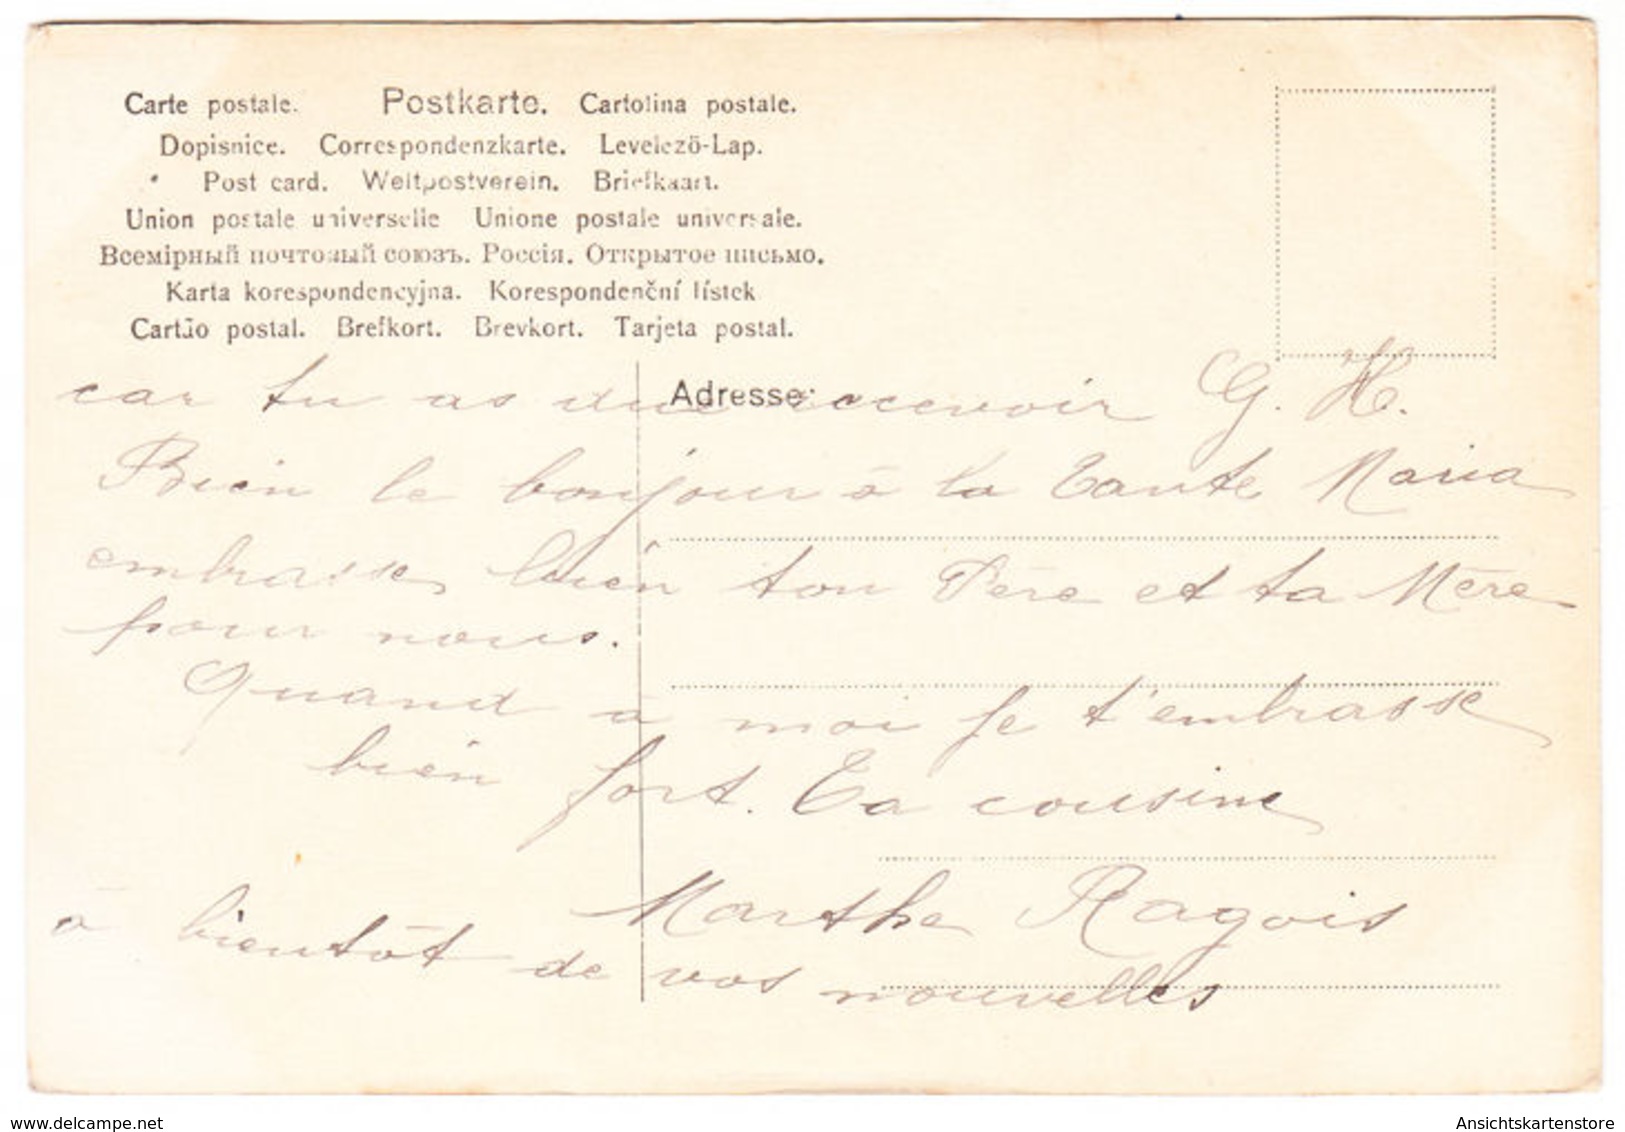 Carte postale. Postkarte. Cartolina postale.
Dopisnice. Correspondenzkarte. Levelező-Lap.
Post card. Weltpostverein. Briefkaart.
Union postale universelle Unione postale universale.
Всемірный почтовый союзъ. Россія. Открытое письмо.
Karta korespondencyjna. Korespondenční lístek
Cartão postal. Brefkort. Brevkort. Tarjeta postal.
Adresse:
car tu as due recevoir G. H.
Bien le bonjour à la Tante Maria
embrasse bien ton Père et ta Mère
pour nous.
Quand à moi je t'embrasse
bien fort. Ta cousine
Marthe Ragois
à bientôt de vos nouvelles
delcampe.net
Ansichtskartenstore